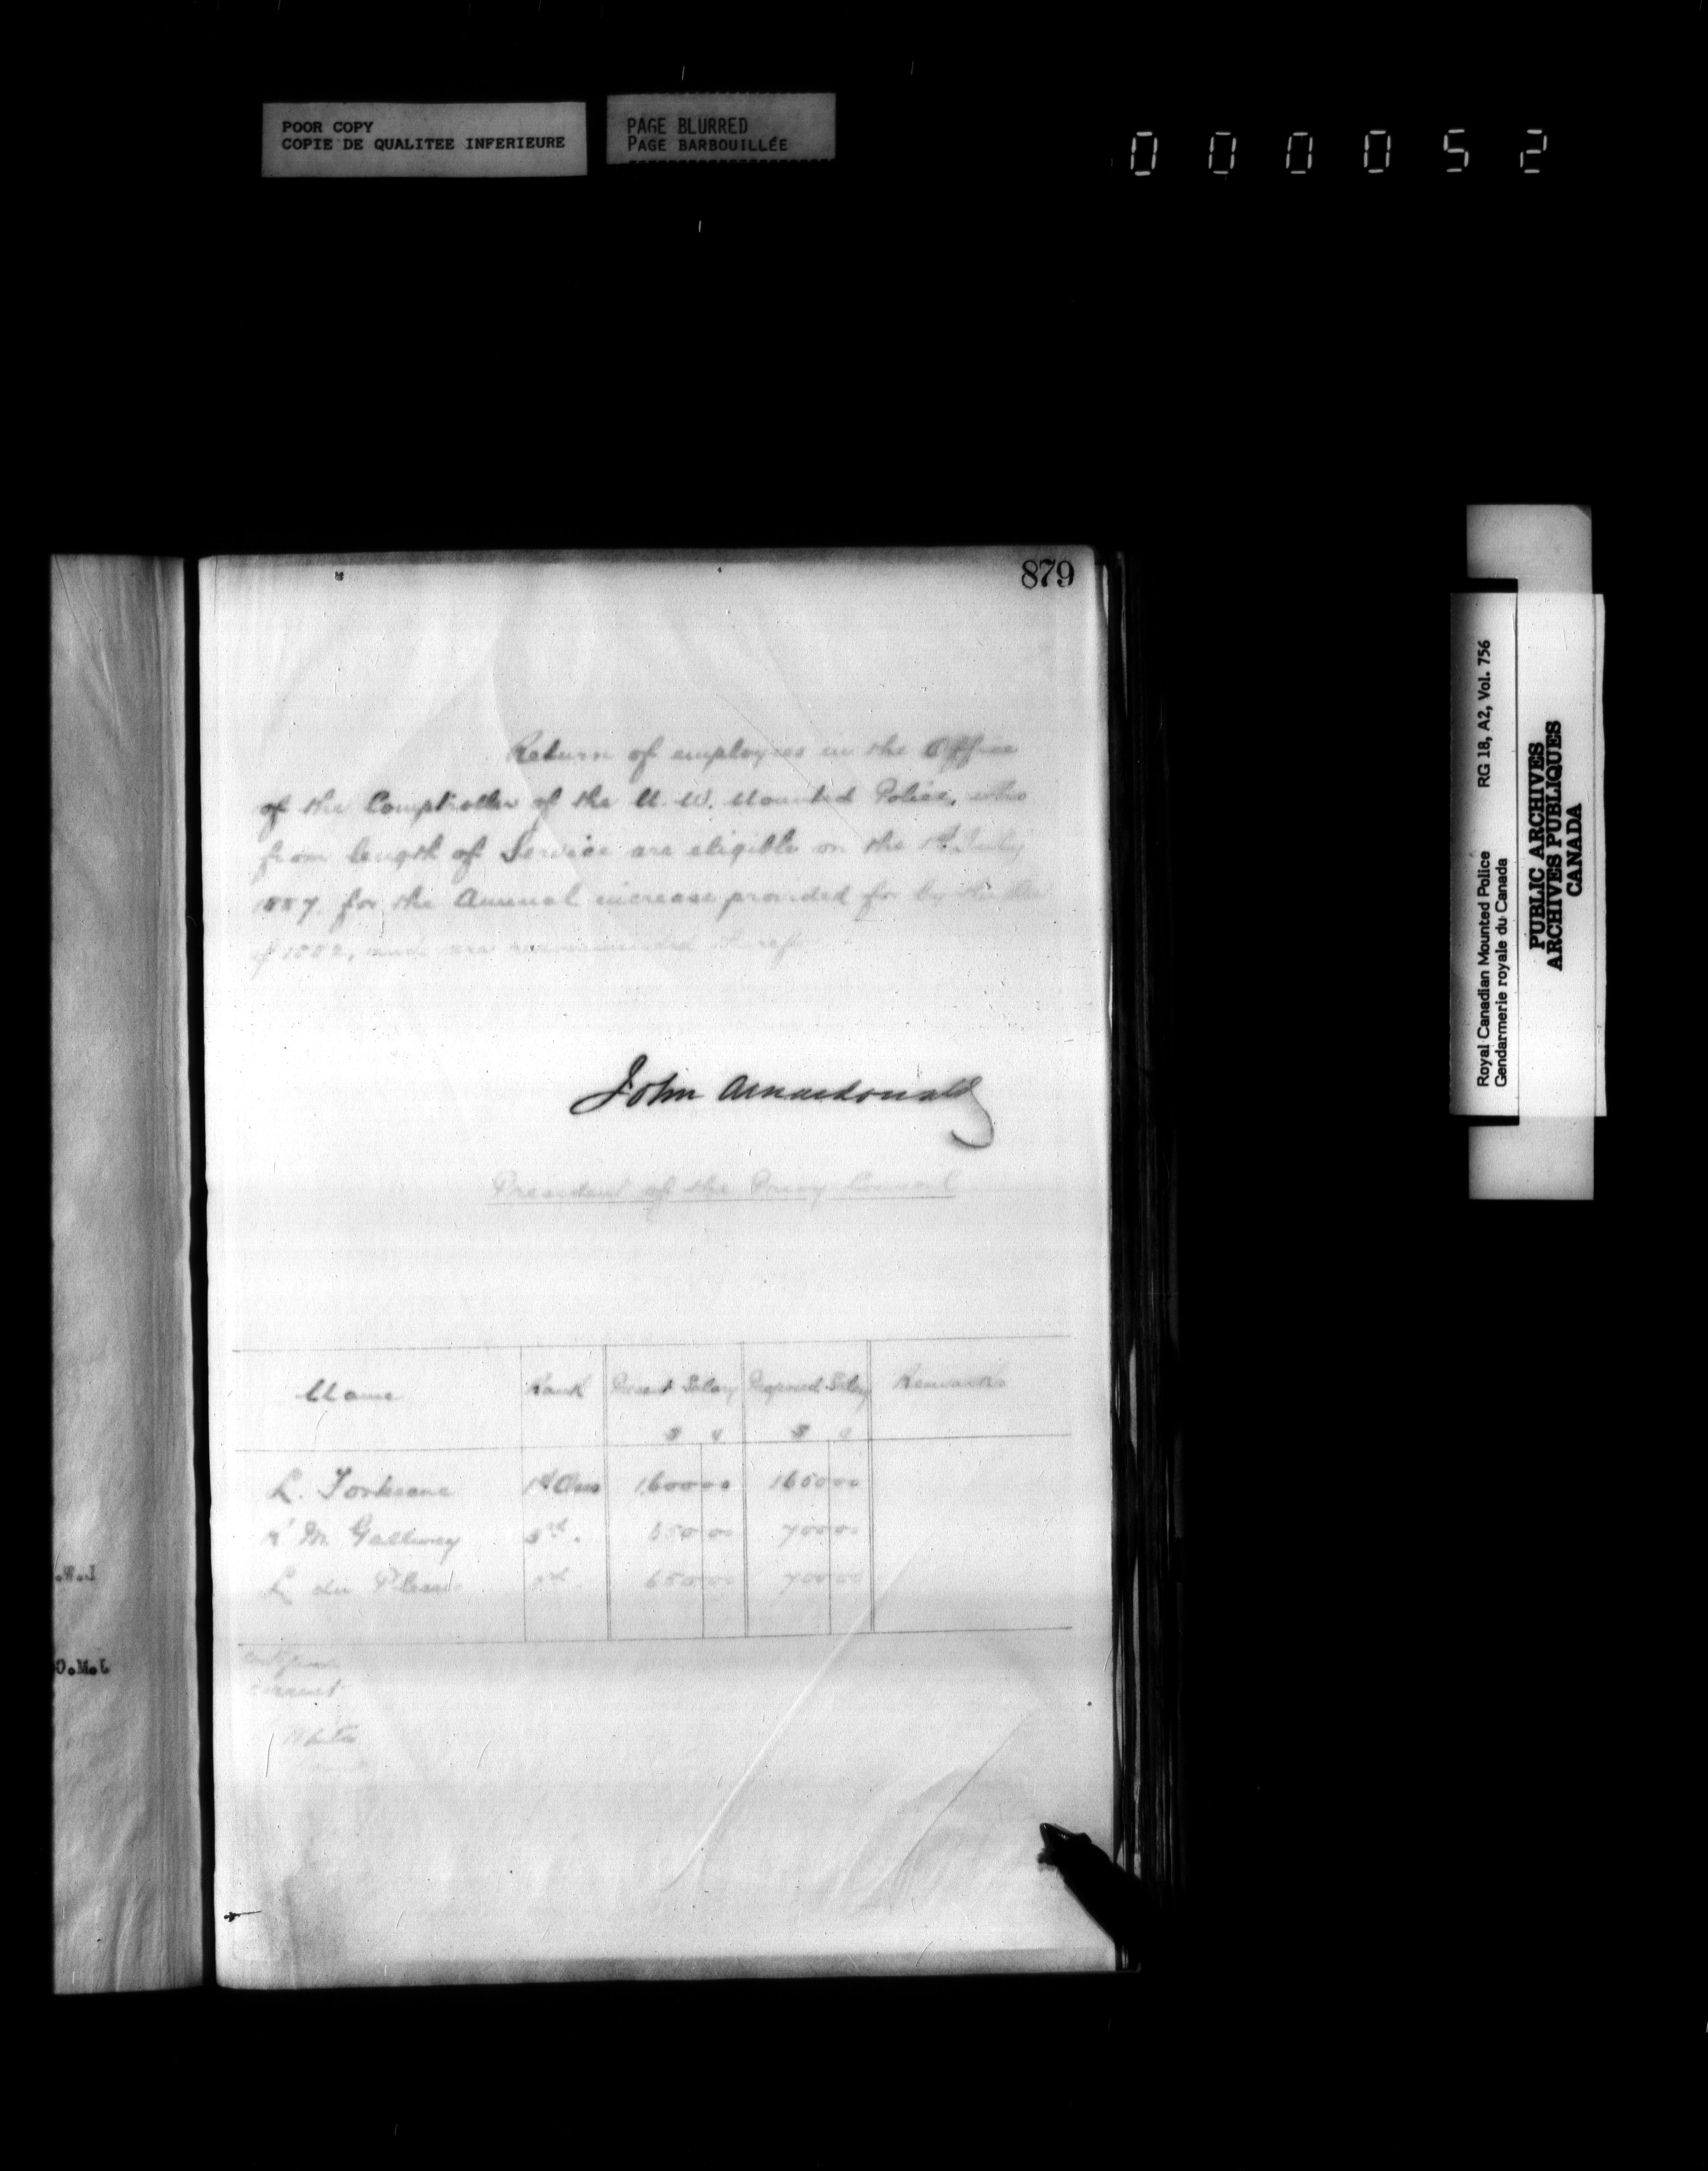 POOR COPY
COPIE DE QUALITEE INFERIEURE
PAGE BLURRED
PAGE BARBOUILLÉE
000052
879
Return of employees in the Office
of the Comptroller of the N. W. Mounted Police, who
from length of Service are eligible on the 1st July
1887, for the Annual increase provided for by the
of 1882, and are recommended
John A Macdonald
President of the Privy Council
Name Rank Present Salary Proposed Salary Remarks
$ ¢ $ ¢
L. Fortescue 1st Class 1,600 00 1650 00
M. Gallwey 3rd. 650 00 700 00
L. du Plessis 3rd. 650 00 700 00
correct
White
.W.J
O.M.L
Royal Canadian Mounted Police RG 18, A2, Vol. 756
Gendarmerie royale du Canada
PUBLIC ARCHIVES
ARCHIVES PUBLIQUES
CANADA